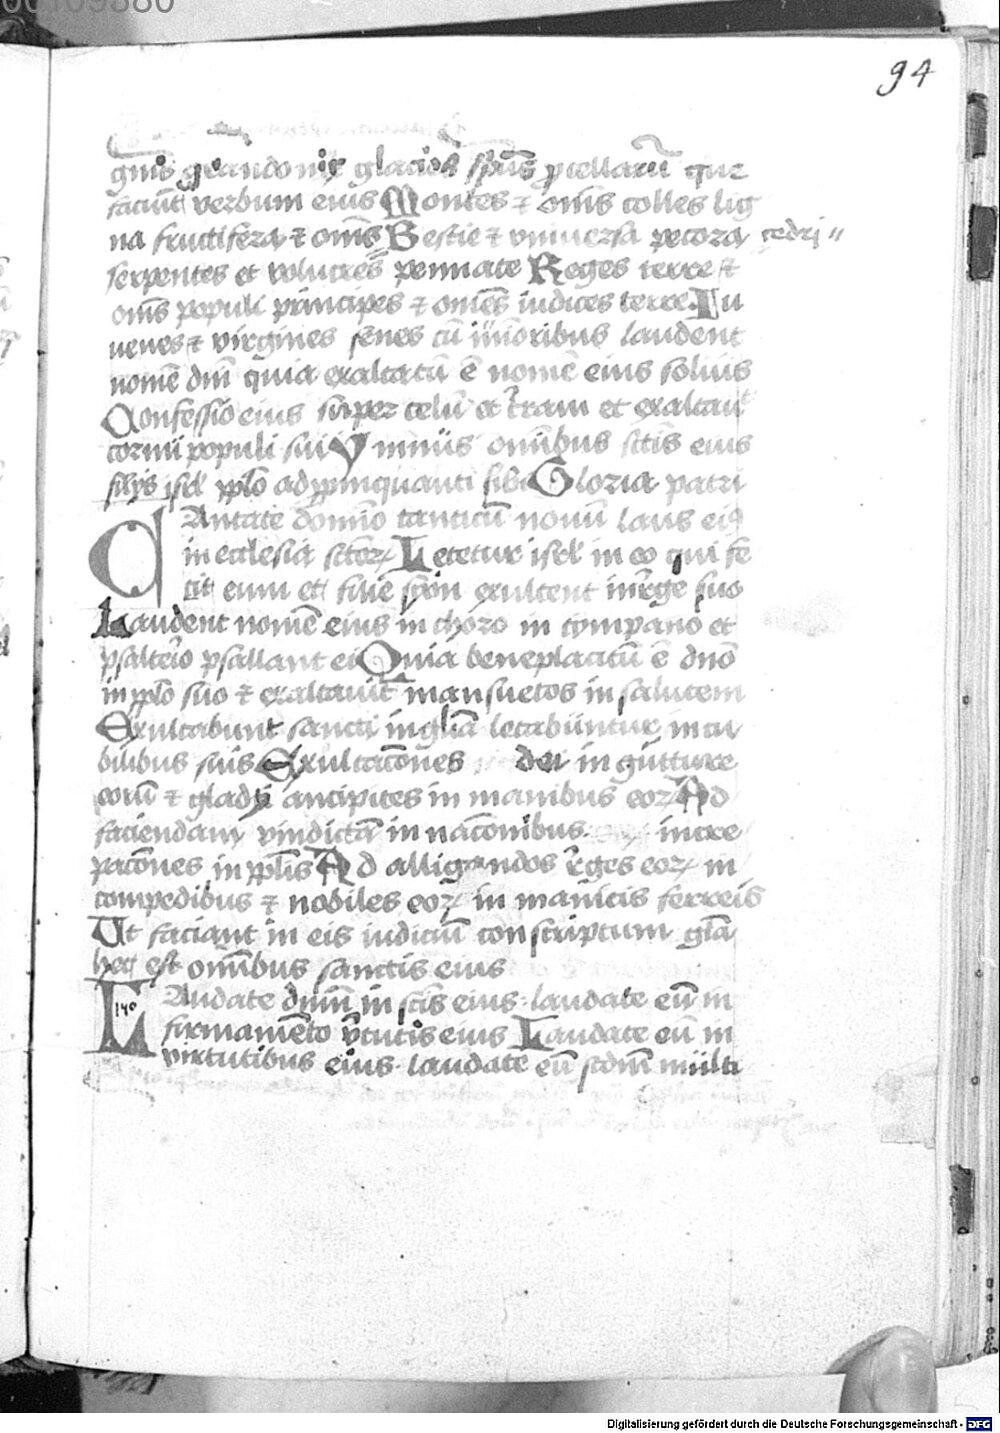 00109880
94
gnis grando nix glacies sp̄us p̱cellarū que
faciūt verbum eius Montes ⁊ om̄s colles lig
na fructifera ⁊ om̄s cedri〃
Bestie ⁊ vniuersa pecora
serpentes et volucres pennate Reges terre et
om̄s populi principes ⁊ om̄es iudices terre Iu
uenes ⁊ virgines senes cū iūnioribus laudent
nomē dn̄i quia exaltatū ē nomē eius solius
Confessio eius super celū et t̄ram et exaltauit
cornu populi sui Ymnus om̄ibus sc̄tis eius
filijs isrl̄ pp̄lo adp̱pinquanti sibi Gloria patri
CAntate domīo canticū nouū laus eiꝰ
in ecclesia sc̄toꝝ Letetur isrl̄ in eo qui fe
cit eum et filie syon exultent in rege suo
Laudent nomē eius in choro in tympano et
psalterīo psallant ei Quia beneplacitū ē dn̄o
in pp̄lo suo ⁊ exaltauit mansuetos in salutem
Exultabunt sancti in gl̄ia letabūntur in cu
bilibus suis Exultacōnes dei in gutture
eorū ⁊ gladij ancipites in manibus eoꝝ Ad
faciendam vindictā in nacōnibus incre
pacōnes in pp̄lis Ad alligandos reges eoꝝ in
compedibus ⁊ nobiles eoꝝ in manicis ferreis
Ut faciant in eis iudiciū conscriptum gl̄a
hec est om̄ibus sanctis eius
LAudate dn̄m in sc̄tis eius laudate eū in
140
firmamēto v̄tutis eius Laudate eū in
virtutibus eius laudate eū scdm̄ multi
Digitalisierung gefördert durch die Deutsche Forschungsgemeinschaft - DFG